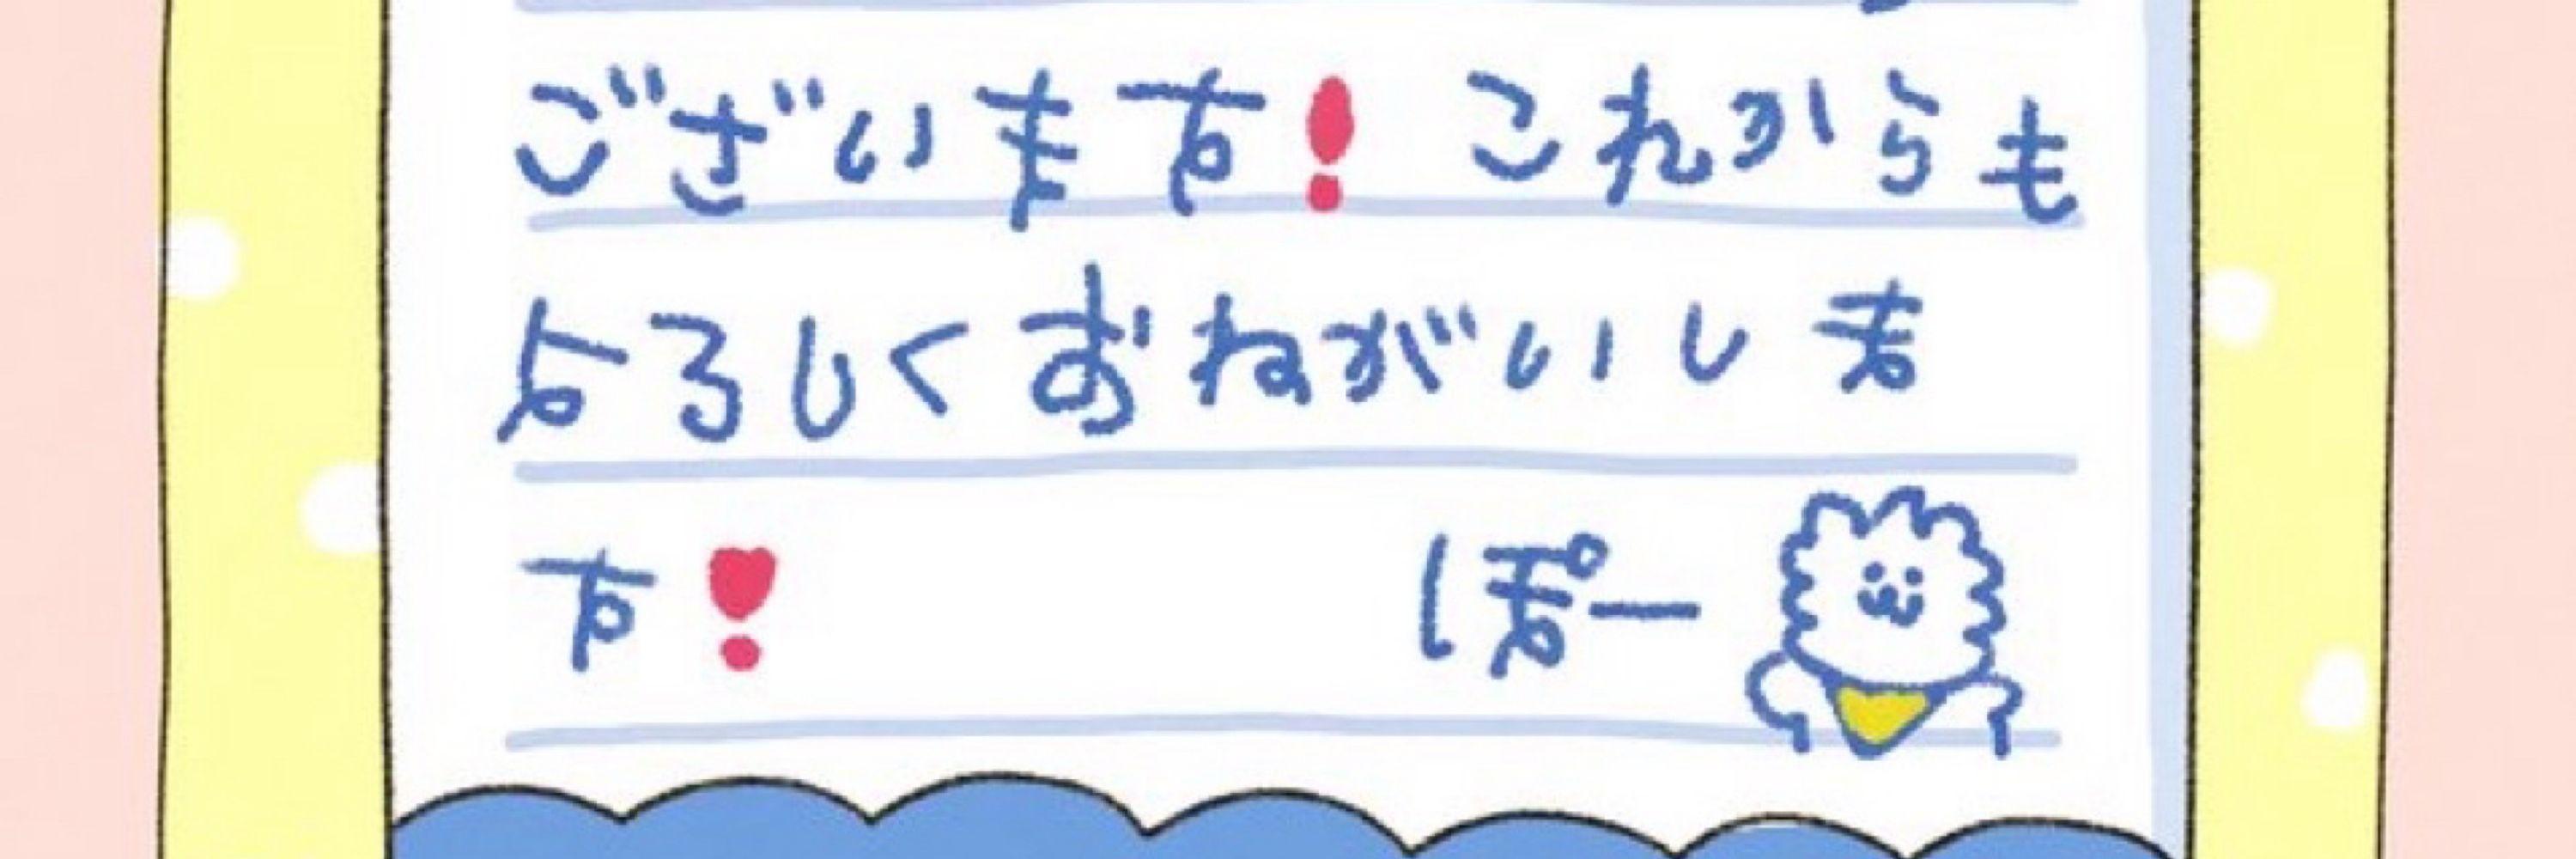 ございます！ これからも
よろしくおねがいしま
す！ ぽー